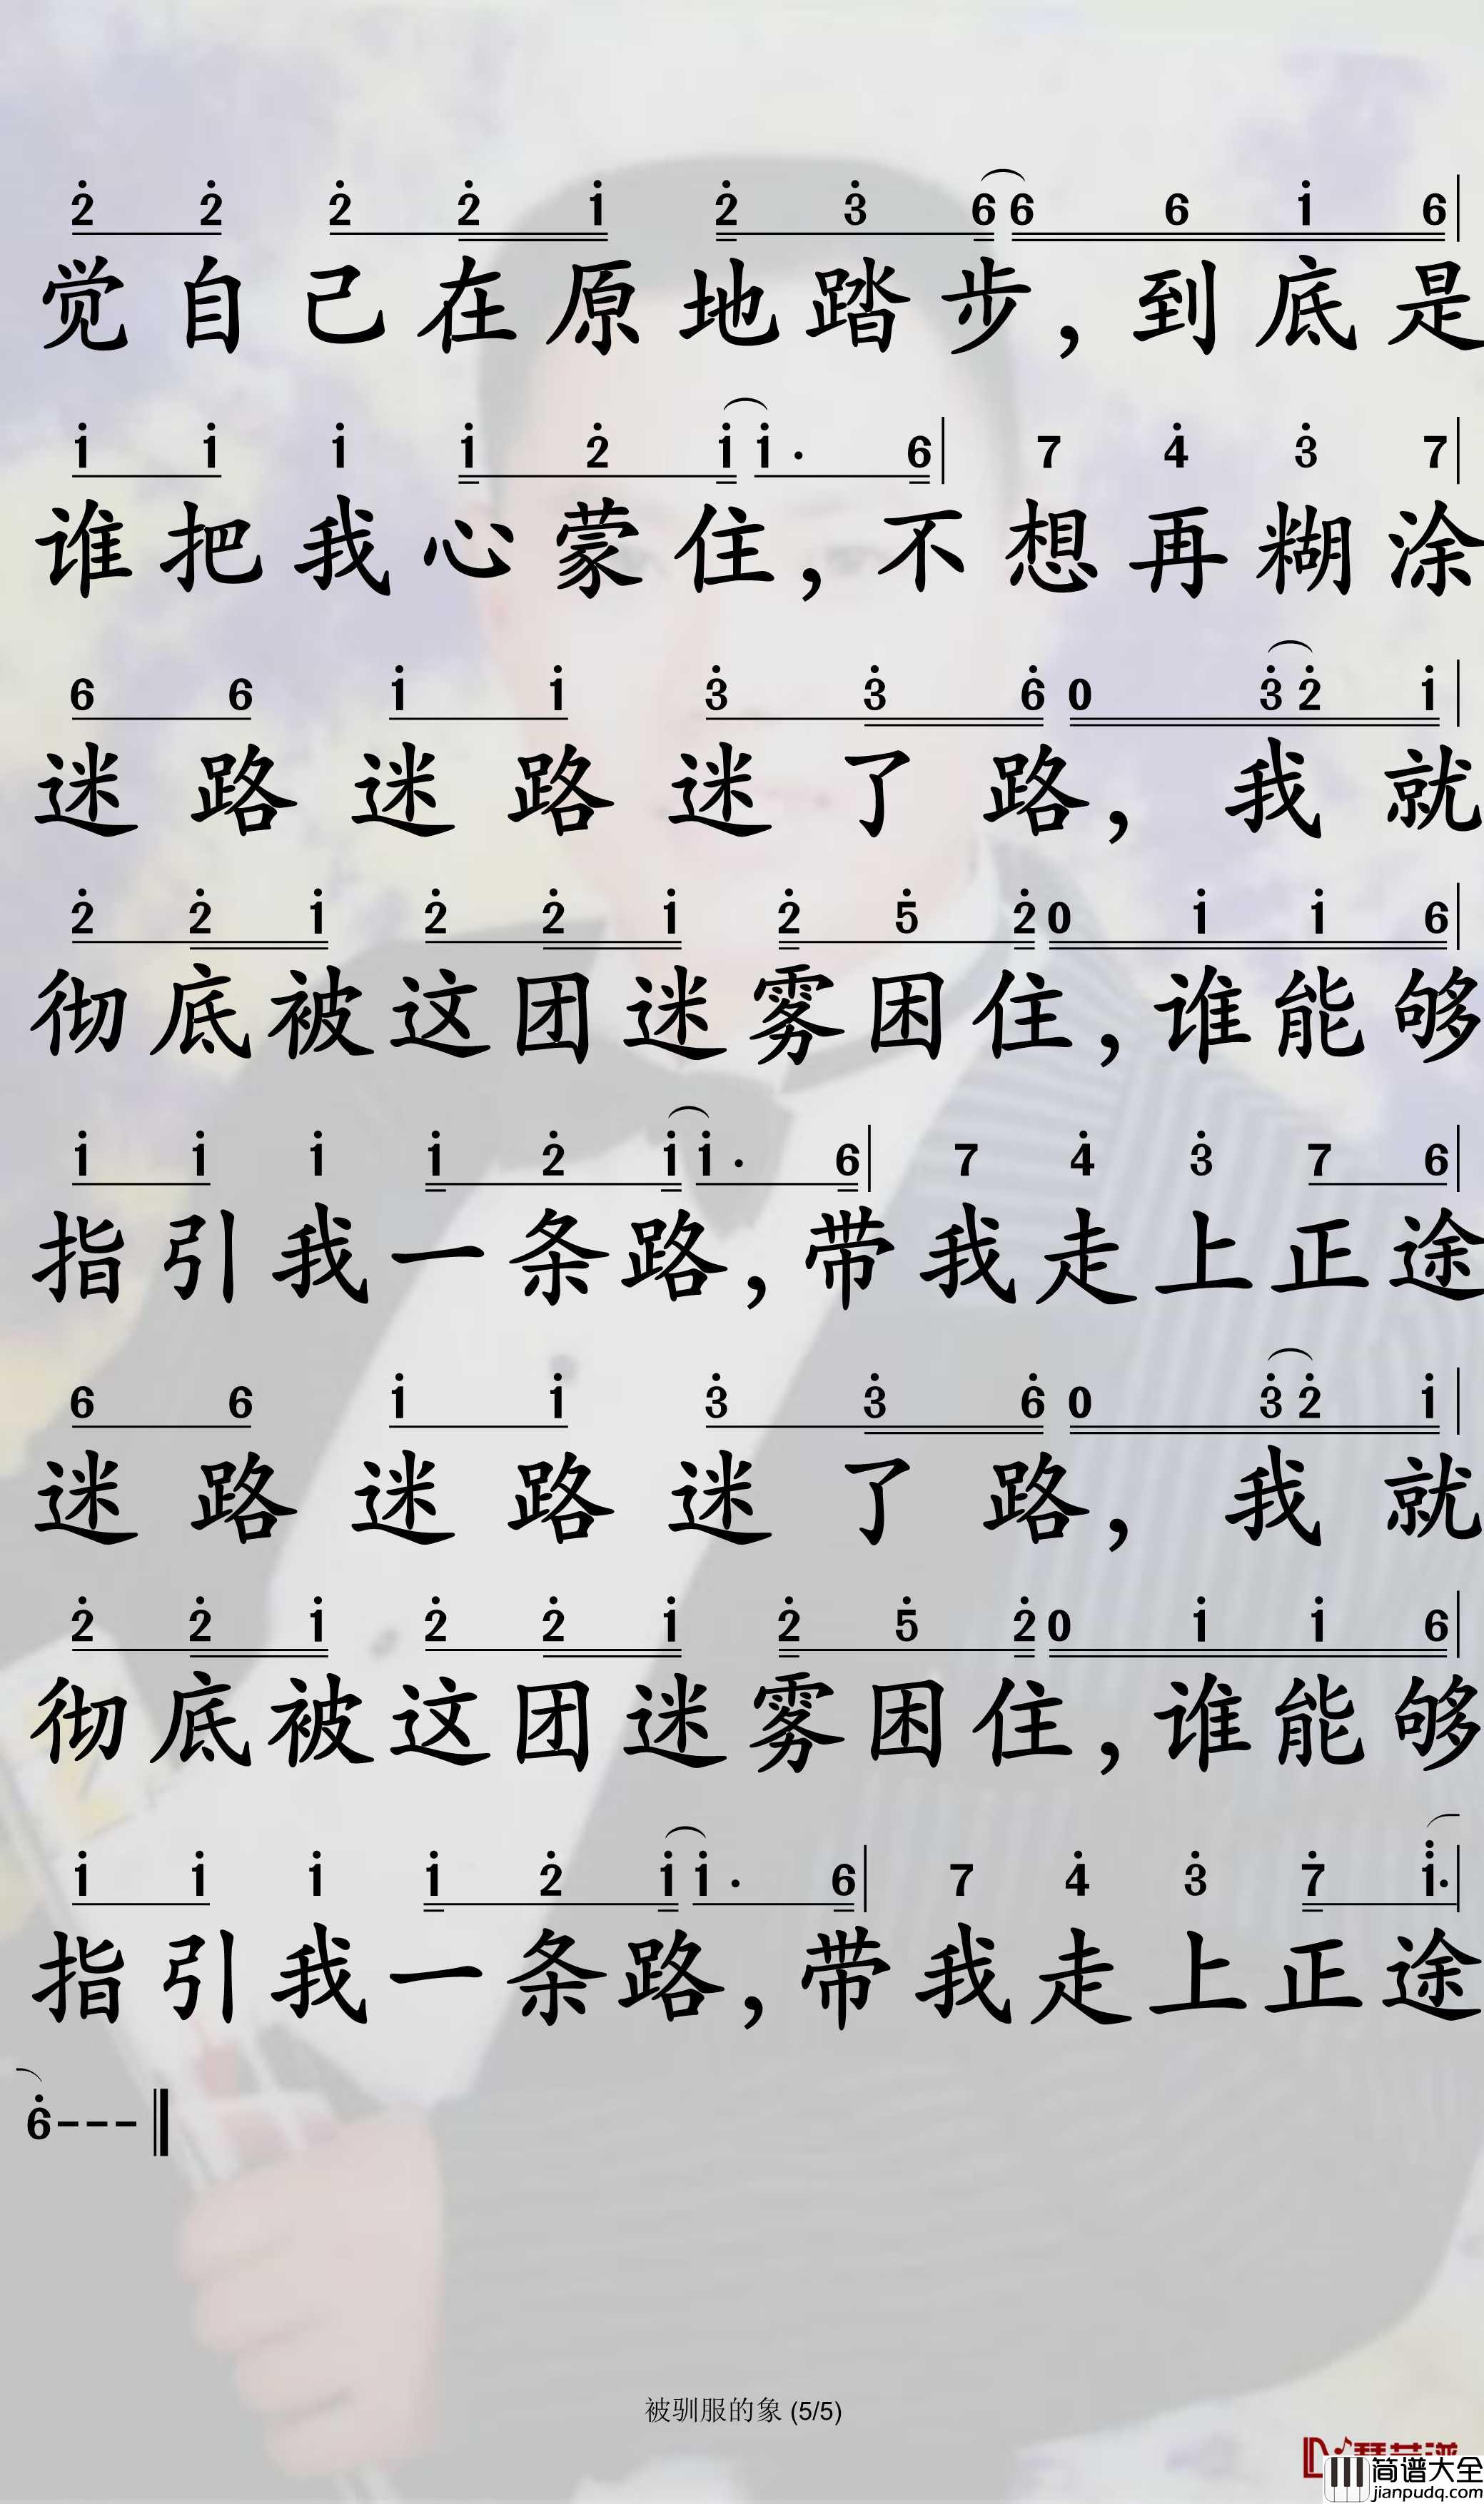 2̇ 2̇ 2̇ 2̇ 1̇ 2̇ 3̇ 6 6 6 1̇ 6
觉自己在原地踏步，到底是
1̇ 1̇ 1̇ 1̇ 2̇ 1̇ 1̇· 6 7 4̇ 3̇ 7
谁把我心蒙住，不想再糊涂
6 6 1̇ 1̇ 3̇ 3̇ 6̇ 0 3̇ 2̇ 1̇
迷路迷路迷了路，我就
2̇ 2̇ 1̇ 2̇ 2̇ 1̇ 2̇ 5̇ 2̇ 0 1̇ 1̇ 6
彻底被这团迷雾困住，谁能够
1̇ 1̇ 1̇ 1̇ 2̇ 1̇ 1̇· 6 7 4̇ 3̇ 7 6
指引我一条路，带我走上正途
6 6 1̇ 1̇ 3̇ 3̇ 6̇ 0 3̇ 2̇ 1̇
迷路迷路迷了路，我就
2̇ 2̇ 1̇ 2̇ 2̇ 1̇ 2̇ 5̇ 2̇ 0 1̇ 1̇ 6
彻底被这团迷雾困住，谁能够
1̇ 1̇ 1̇ 1̇ 2̇ 1̇ 1̇· 6 7 4̇ 3̇ 7̇ 1̈·
指引我一条路，带我走上正途
6̇---
被驯服的象 (5/5)
简谱大全
jianpudq.com